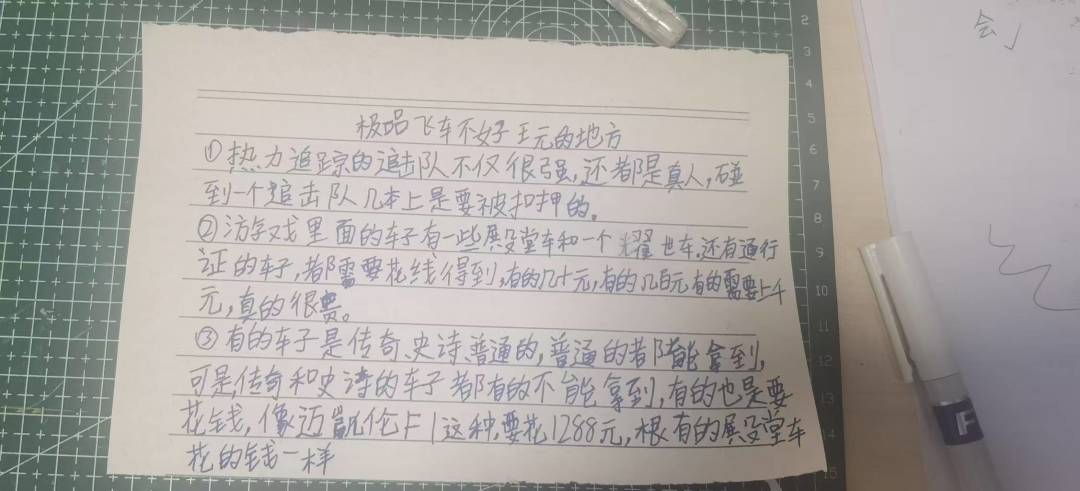 极品飞车不好玩的地方
①热力追踪的追击队不仅很强,还都是真人,碰
到一个追击队几本上是要被扣押的。
②游戏里面的车子有一些殿堂车和一个耀世车.还有通行
证的车子,都需要花线得到,有的几十元,有的几百元有的需要上千
元,真的很贵。
③有的车子是传奇、史诗、普通的,普通的都能拿到,
可是,传奇和史诗的车子都有的不能拿到,有的也是要
花钱,像迈凯伦F1这种,要花1288元,根有的殿堂车
花的钱一样
会√
2
3
4
5
6
7
8
9
10
11
12
13
14
15
F